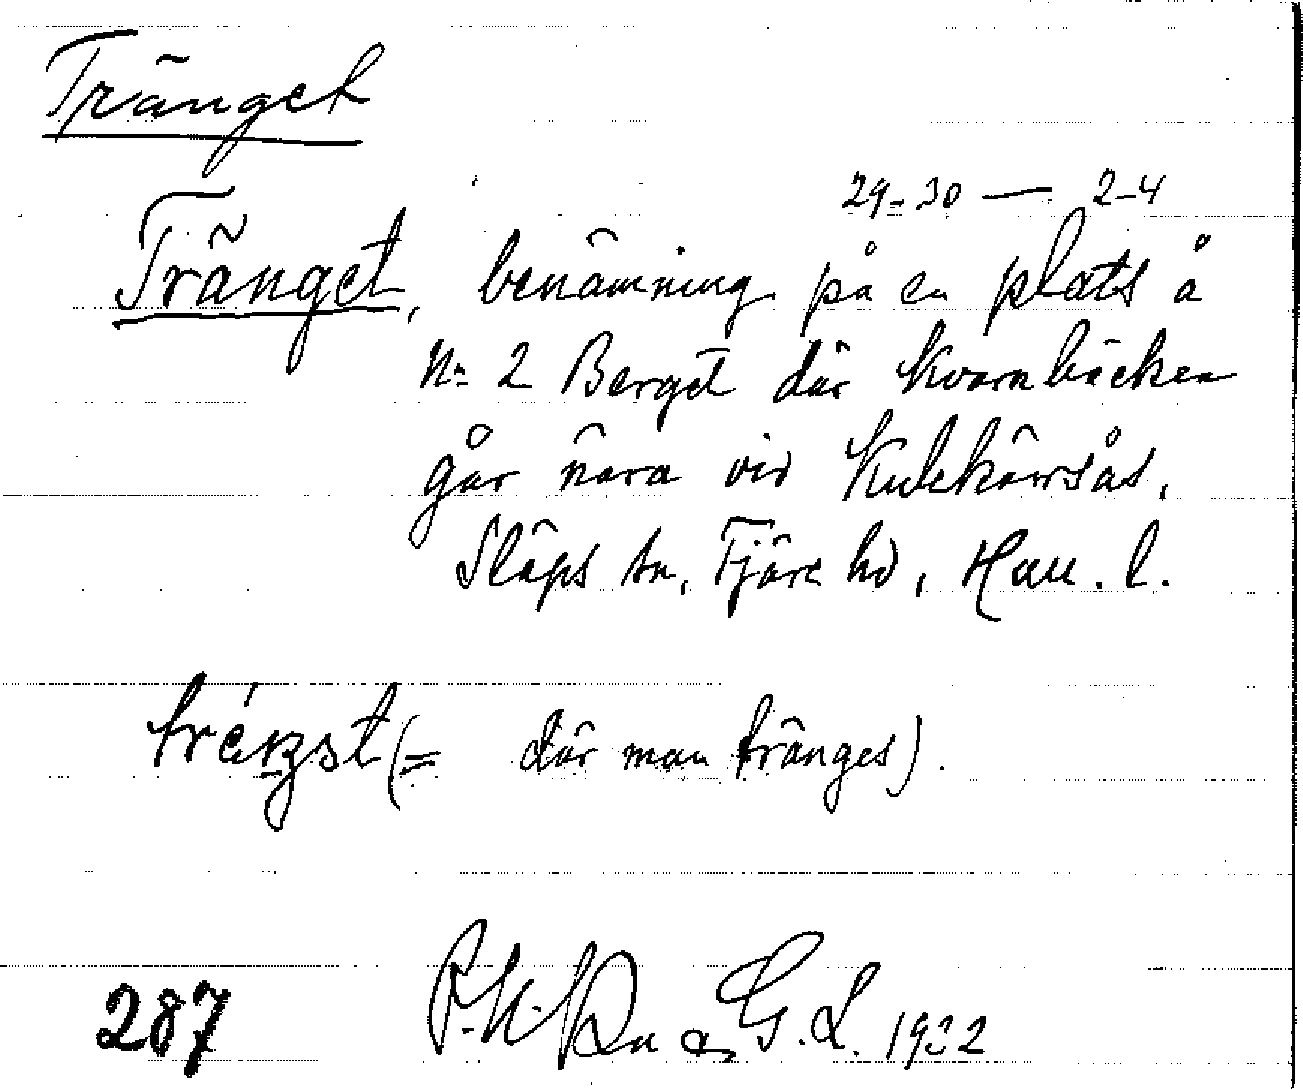 Tränget
29-30 — 2-4
Tränget, benämning på en plats å
No 2 Berget där Kvarnbäcken
går nära vid Kulekärrsås,
Släps sn, Fjäre hd, Hall. l.
(= där man tränges).
287 G. L. 1932